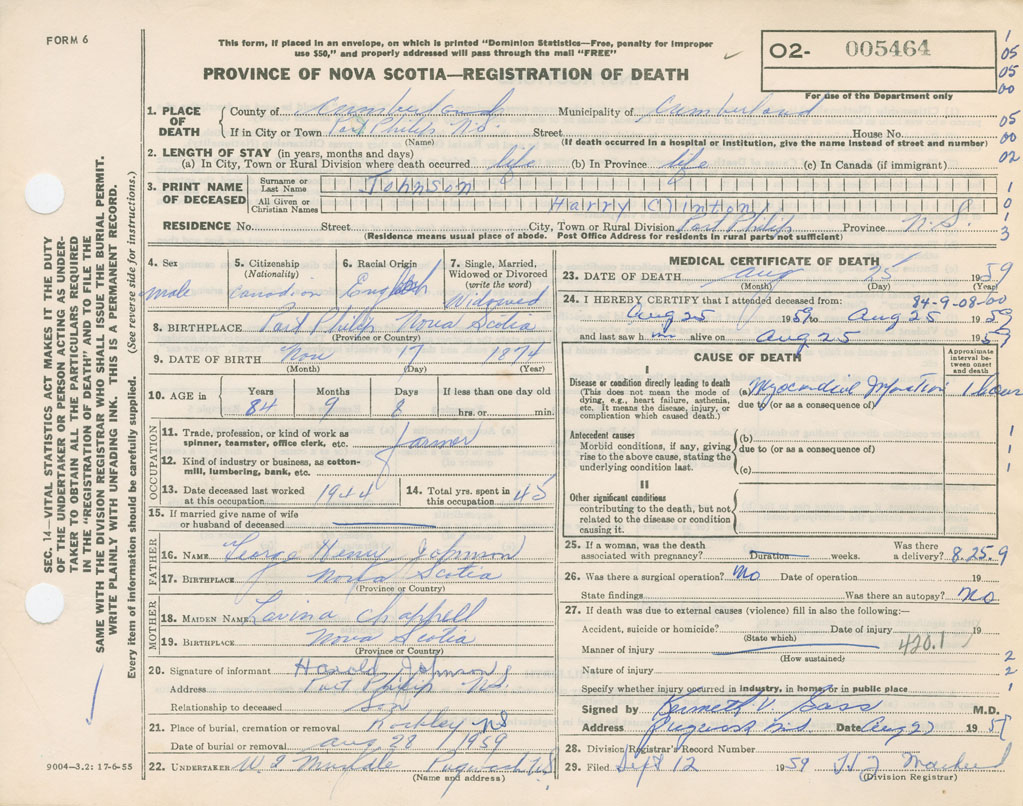 FORM 6
This form, if placed in an envelope, on which is printed "Dominion Statistics—Free, penalty for improper
use $50," and properly addressed will pass through the mail "FREE"
O2- 005464
For use of the Department only
PROVINCE OF NOVA SCOTIA—REGISTRATION OF DEATH
1. PLACE OF DEATH County of Cumberland Municipality of Cumberland
If in City or Town Port Philip N.S. Street House No.
(Name) (If death occurred in a hospital or institution, give the name instead of street and number)
2. LENGTH OF STAY (in years, months and days)
(a) In City, Town or Rural Division where death occurred life (b) In Province life (c) In Canada (if immigrant)
3. PRINT NAME OF DECEASED Surname or Last Name Johnson
All Given or Christian Names Harry Clinton
RESIDENCE No. Street City, Town or Rural Division Port Philip Province N.S.
(Residence means usual place of abode. Post Office Address for residents in rural parts not sufficient)
4. Sex male
5. Citizenship (Nationality) Canadian
6. Racial Origin English
7. Single, Married, Widowed or Divorced (write the word) Widowed
8. BIRTHPLACE Port Philip Nova Scotia
(Province or Country)
9. DATE OF BIRTH Nov 17 1874
(Month) (Day) (Year)
10. AGE in Years Months Days If less than one day old
84 9 8 hrs. or min.
OCCUPATION
11. Trade, profession, or kind of work as spinner, teamster, office clerk, etc. farmer
12. Kind of industry or business, as cotton-mill, lumbering, bank, etc.
13. Date deceased last worked at this occupation 1944
14. Total yrs. spent in this occupation 45
15. If married give name of wife or husband of deceased
FATHER
16. NAME George Henry Johnson
17. BIRTHPLACE Nova Scotia
(Province or Country)
MOTHER
18. MAIDEN NAME Lavina Chappell
19. BIRTHPLACE Nova Scotia
(Province or Country)
20. Signature of informant Harold Johnson
Address Port Philip N.S.
Relationship to deceased Son
21. Place of burial, cremation or removal NS
Date of burial or removal aug 28 1959
22. UNDERTAKER W. Pugwash N.S.
(Name and address)
9004-3.2: 17-6-55
MEDICAL CERTIFICATE OF DEATH
23. DATE OF DEATH aug 25 1959
(Month) (Day) (Year)
84-9-08-00
24. I HEREBY CERTIFY that I attended deceased from:
aug 25 1959 to aug 25 1959
and last saw h im alive on aug 25 1959
CAUSE OF DEATH
Approximate interval between onset and death
I
Disease or condition directly leading to death
(This does not mean the mode of dying, e.g., heart failure, asthenia, etc. It means the disease, injury, or complication which caused death.)
(a) Myocardial Infarction 1 hour
due to (or as a consequence of)
Antecedent causes
Morbid conditions, if any, giving rise to the above cause, stating the underlying condition last.
(b)
due to (or as a consequence of)
(c)
II
Other significant conditions
contributing to the death, but not related to the disease or condition causing it.
25. If a woman, was the death associated with pregnancy? Duration weeks. Was there a delivery? 8.25.9
26. Was there a surgical operation? No Date of operation 19
State findings Was there an autopsy? No
27. If death was due to external causes (violence) fill in also the following:—
Accident, suicide or homicide? Date of injury 19
(State which)
Manner of injury 420.1
(How sustained)
Nature of injury
Specify whether injury occurred in industry, in home, or in public place
Signed by Kenneth V. Gass M.D.
Address Pugwash N.S. Date Aug 27 1959
28. Division Registrar's Record Number
29. Filed Sept 12 1959
(Division Registrar)
SEC. 14—VITAL STATISTICS ACT MAKES IT THE DUTY
OF THE UNDERTAKER OR PERSON ACTING AS UNDER-
TAKER TO OBTAIN ALL THE PARTICULARS REQUIRED
IN THE "REGISTRATION OF DEATH" AND TO FILE THE
SAME WITH THE DIVISION REGISTRAR WHO SHALL ISSUE THE BURIAL PERMIT.
WRITE PLAINLY WITH UNFADING INK. THIS IS A PERMANENT RECORD.
Every item of information should be carefully supplied. (See reverse side for instructions.)
1
05
05
00
05
00
02
1
0
1
3
1
1
1
2
2
1